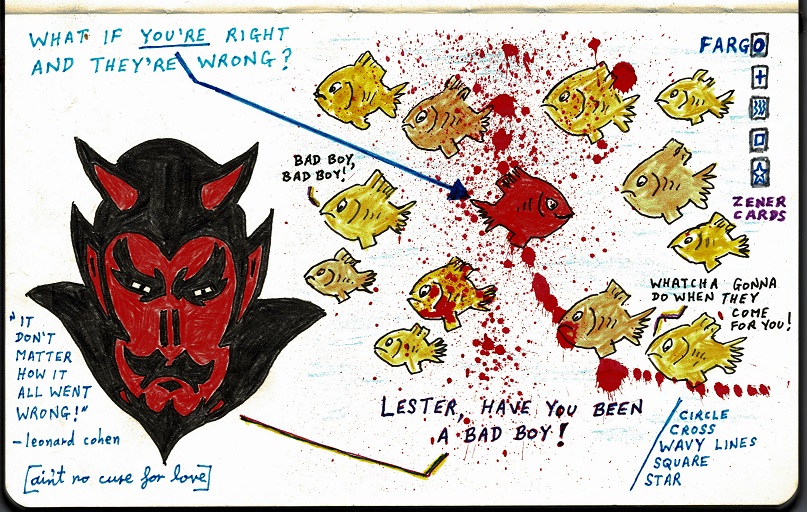 WHAT IF YOU'RE RIGHT
AND THEY'RE WRONG?
FARGO
BAD BOY,
BAD BOY!,
ZENER
CARDS
WHATCHA GONNA
DO WHEN THEY
COME
FOR YOU!
"IT
DON'T
MATTER
HOW IT
ALL WENT
WRONG!"
- leonard cohen
[ain't no cure for love]
LESTER, HAVE YOU BEEN
A BAD BOY!
CIRCLE
CROSS
WAVY LINES
SQUARE
STAR